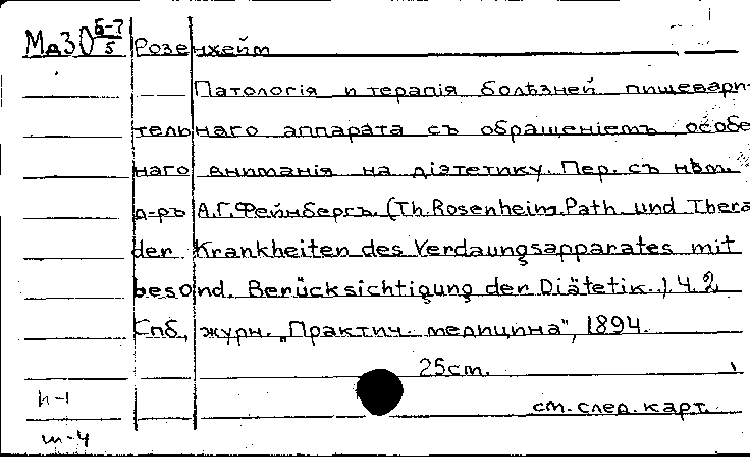 МдЗ0 6-7/5 Розенхейм
Патологія и терапія болѣзней пищевари-
тельнаго аппарата съ обращеніемъ особе
наго вниманія на діэтетику. Пер. съ нѣм.
д-ръ А.Г.Фейнбергъ. (Th. Rosenheim. Path. und Thera
der Krankheiten des Verdaungsapparates mit
besond. Berücksichtigung der Diätetik.) Ч. 2
Спб., журн. „Практич. медицина", 1894.
25cm.
h-1
см. след. карт.
ш-4